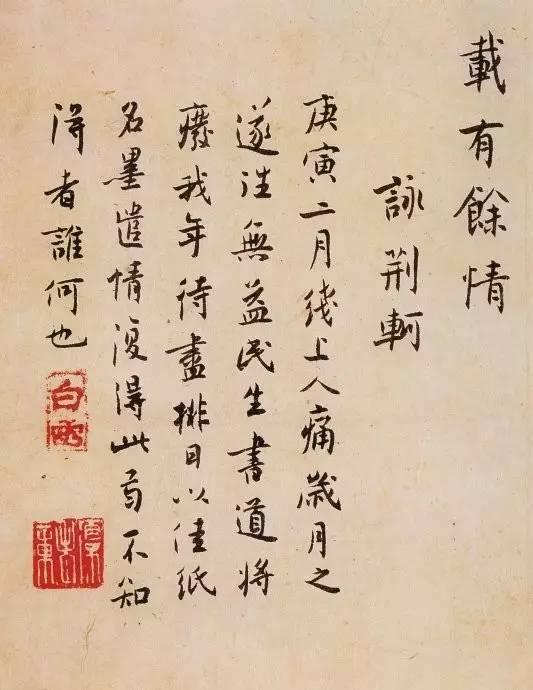 載有餘情
詠荊軻
庚寅二月綫上人痛歲月之
遂往無益民生書道將
癈我年待盡排日以佳紙
名墨遣情復得此首不知
得者誰何也